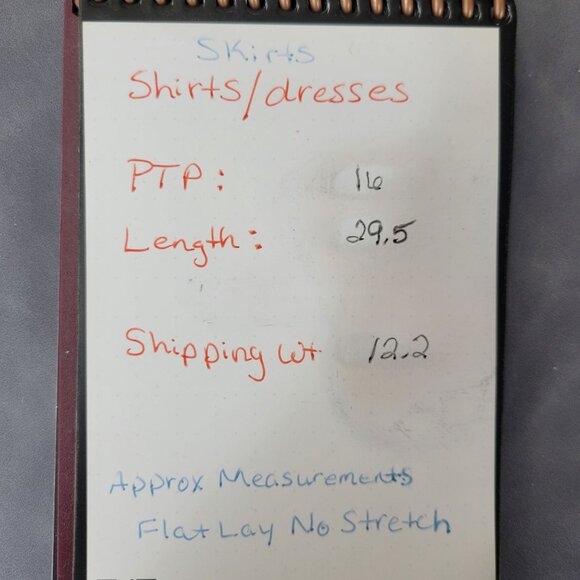 Skirts
Shirts/dresses
PTP: 16
Length: 29.5
Shipping Wt 12.2
Approx Measurements
Flat Lay No Stretch